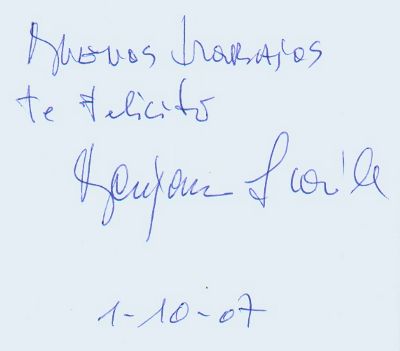 Buenos trabajos
te felicito
1-10-07